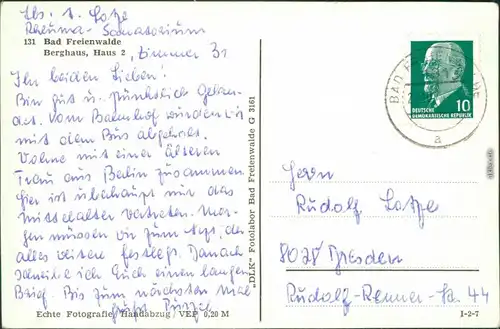 Abs. I. Lotze
Rheuma-Sanatorium
131 Bad Freienwalde
Berghaus, Haus 2, Zimmer 31
Ihr beiden Lieben!
Bin gut u. pünktlich gelan-
det. Vom Bahnhof wurden wir
mit dem Bus abgeholt.
Wohne mit einer älteren
Frau aus Berlin zusammen
hier ist überhaupt nur das
Mittelalter vertreten. Mor-
gen müssen wir zum Arzt, der
alles weitere festlegt. Danach
schreibe ich Euch einen langen
Brief. Bis zum nächsten Mal
Echte Fotografie, Handabzug / VEP 0,20 M
"DLK" Fotolabor Bad Freienwalde G 3161
BAD
a
10
DEUTSCHE
DEMOKRATISCHE REPUBLIK
Herrn
Rudolf Lotze
8028 Dresden
Rudolf-Renner-Str. 44
I-2-7